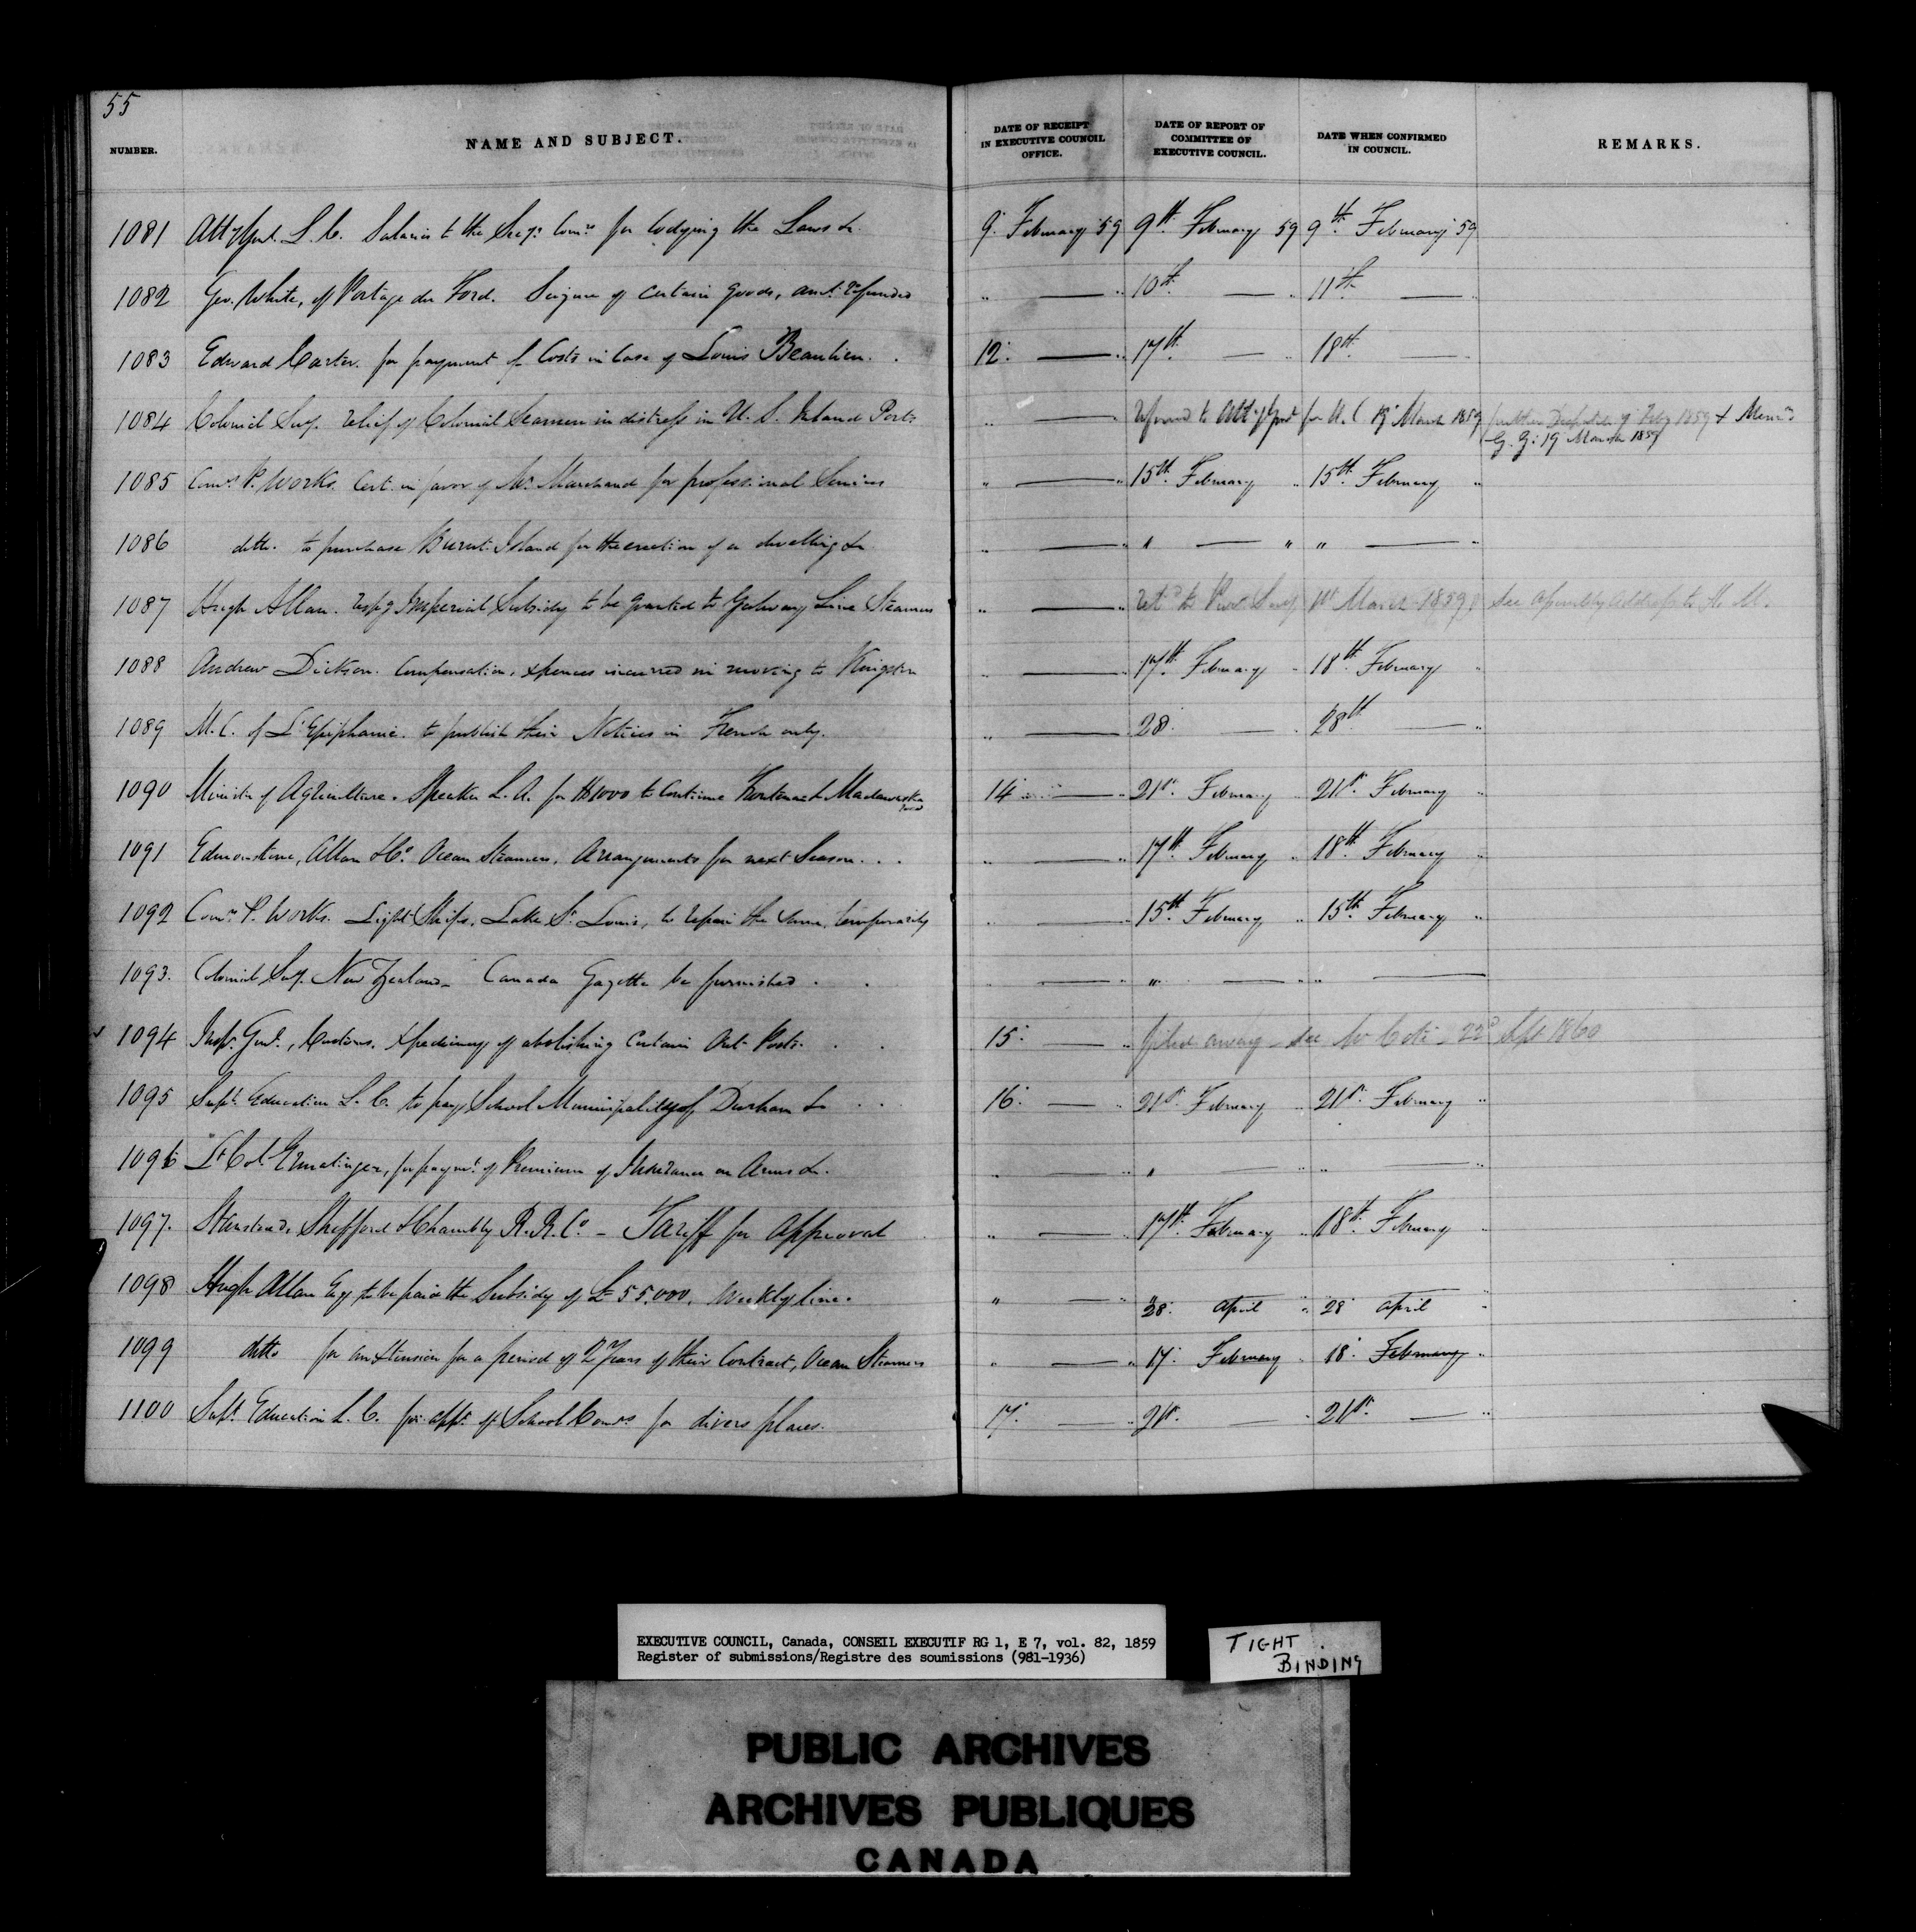 55
NUMBER. NAME AND SUBJECT. DATE OF RECEIPT IN EXECUTIVE COUNCIL OFFICE. DATE OF REPORT OF COMMITTEE OF EXECUTIVE COUNCIL. DATE WHEN CONFIRMED IN COUNCIL. REMARKS.
1081 Atty Genl. L. C. Salaries to the Secys. Comrs. for Codifying the Laws &c. 9. February 59 9th. February 59 9th. February 59
1082 Geo. White, of Portage du Ford. Seizure of certain goods, amt. refunded " — " 10th. — " 11th. — "
1083 Edward Carter. for payment of Costs in Case of Louis Beaulieu. . 12. — " 17th. — " 18th. — "
1084 Colonial Secy. relief of Colonial Seamen in distress in U. S. Inland Ports " — " Referred to Atty Genl for U. C March 1859 further Despatch 9 Feby 1859 & Memo
G. G. 19 March 1859
1085 Comrs. P. Works. Cert. in favor of Mr. Marchand for professional Services " — " 15th. February " 15th. February "
1086 ditto. to purchase Burnt Island for the erection of a dwelling &c " — " " — " " — "
1087 Hugh Allan. respg Imperial Subsidy to be granted to Galway Line Steamers " — " Retd to Prov Secy March 1859 See Assembly Address to H. M.
1088 Andrew Dickson. Compensation, xpences incurred in moving to Kingston " — " 17th. February " 18th. February "
1089 M. C. of L'Epiphanie. to publish their Notices in French only. " — " 28. — " 28th — "
1090 Minister of Agriculture. Speaker L. A. for $1000 to Continue Kontenac & Madawaska Road 14 — " 21st. February " 21st. February "
1091 Edmonstone, Allan & Co. Ocean Steamers. Arrangements for next Season. . . " — " 17th. February " 18th. February "
1092 Comrs. P. Works. Light Ships. Lake St. Louis, to repair the same temporarily " — " 15th. February " 15th. February "
1093. Colonial Secy. New Zealand— Canada Gazette be furnished . . " — " " — " " —
1094 Insp. Genl., Customs. Xpediency of abolishing Certain Out Ports. . . 15. — " filed away — see 22d Sept 1860
1095 Supt. Education L. C. to pay School Municipality of Durham &c . . 16. — " 21st. February " 21st. February "
1096 Lt Col. Ermatinger, for paymt. of Premium of Insurance on Arms &c. " — " " — " " — "
1097. Stanstead, Shefford & Chambly R. R. Co. — Tariff for approval " — " 17th. February " 18th. February "
1098 Hugh Allan Esq to be paid the Subsidy of £55,000. Weekly line. " — " 28. April " 28 April "
1099 ditto for an Xtension for a period of 2 Years of their Contract, Ocean Steamers " — " 17. February " 18. February "
1100 Supt. Education L. C. for appt. of School Comrs for divers places. 17. — " 21st. " 21st. — "
EXECUTIVE COUNCIL, Canada, CONSEIL EXECUTIF RG 1, E 7, vol. 82, 1859
Register of submissions/Registre des soumissions (981-1936)
TIGHT
BINDING
PUBLIC ARCHIVES
ARCHIVES PUBLIQUES
CANADA